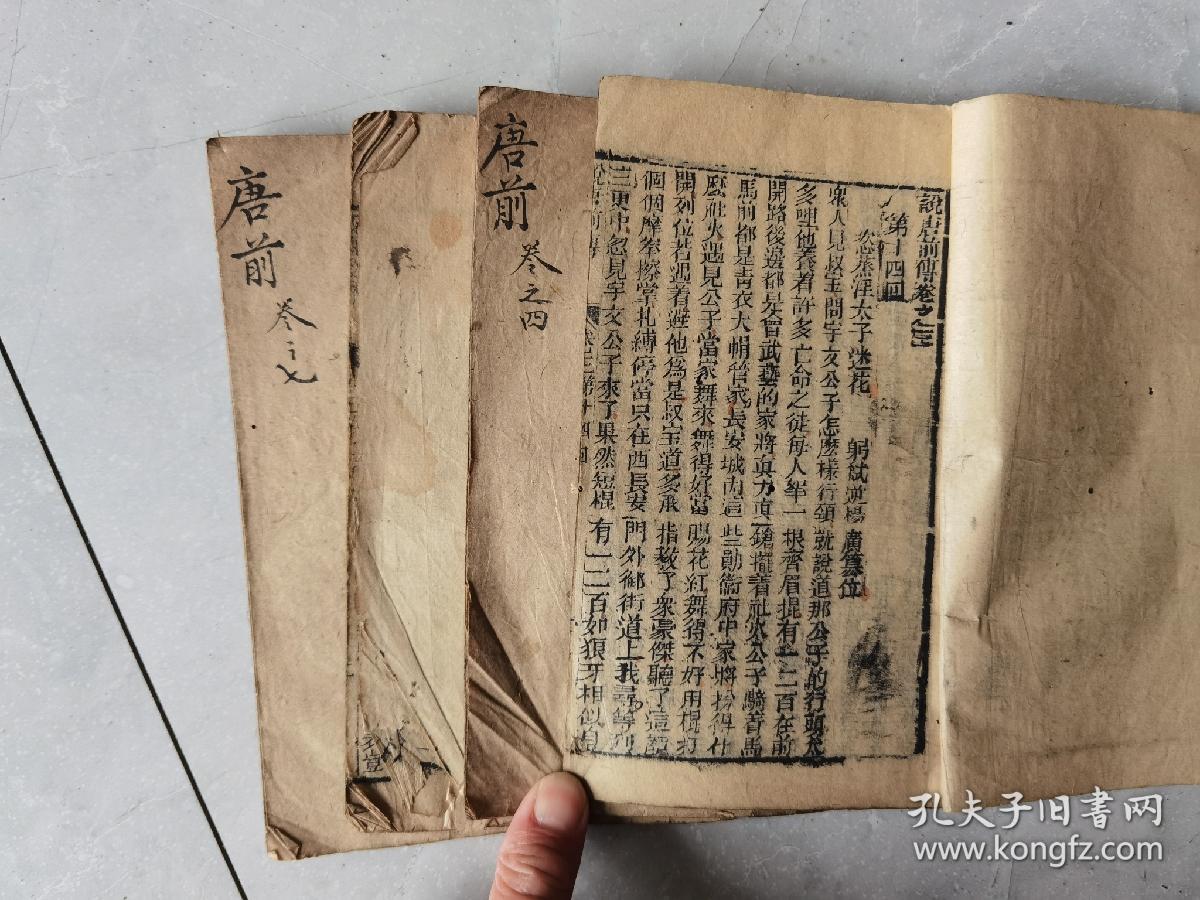 說唐前傳卷之三
第十四回
恣烝淫太子迷花 躬弑逆楊廣篡位
衆人見叔宝問宇文公子怎麼樣行頭就說道那公子的行頭太
多哩他養着許多亡命之徒每人軰一根齊眉提有一二百在前
開路後邊都是會武藝的家將真刀真鎗擺着社火公子騎着馬
馬前都是青衣大帽管家長安城內這些勛衛府中家將扮得什
麼社火遇見公子當家舞來舞得好當賜花紅舞得不好用棍打
開列位若遇着避他爲是叔宝道多承指教了衆豪傑聽了這話
個個摩拳擦掌扎縛停當只在西長安門外御街道上我尋等到
三更中忽見宇文公子來了果然短棍有一二百如狼牙相似自
唐前
卷之四
唐前
卷之七
孔夫子旧书网
www.kongfz.com